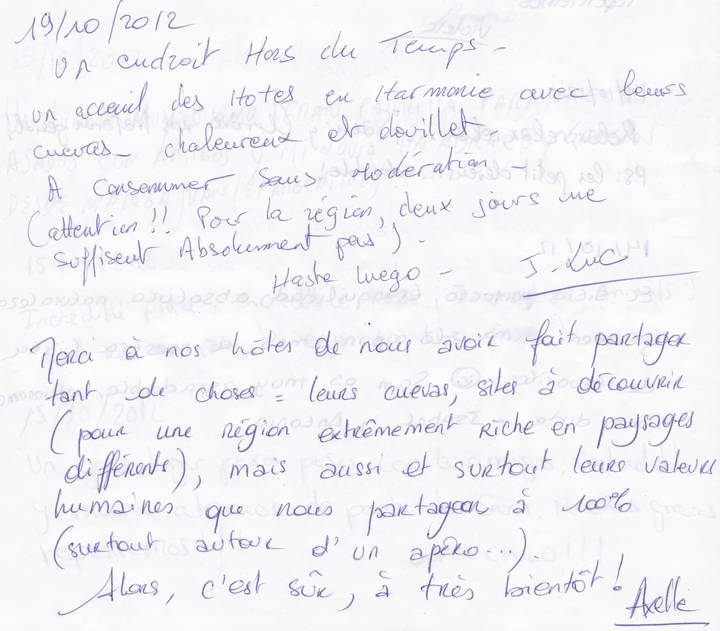 19/10/2012
Un endroit Hors du Temps -
un acceuil des Hotes en Harmonie avec leurs
cuevas - chaleureux et douillet -
A Consommer Sans Modération -
(attention !! Pour la région, deux jours ne
suffisent Absolument pas) -
Hasta luego - J-Luc
Merci à nos hôtes de nous avoir fait partager
tant de choses = leurs cuevas, sites à découvrir
(pour une région extrêmement riche en paysages
différents), mais aussi et surtout leurs valeurs
humaines que nous partageons à 100%
(surtout autour d'un apéro...).
Alors, c'est sûr, à très bientôt !
Axelle